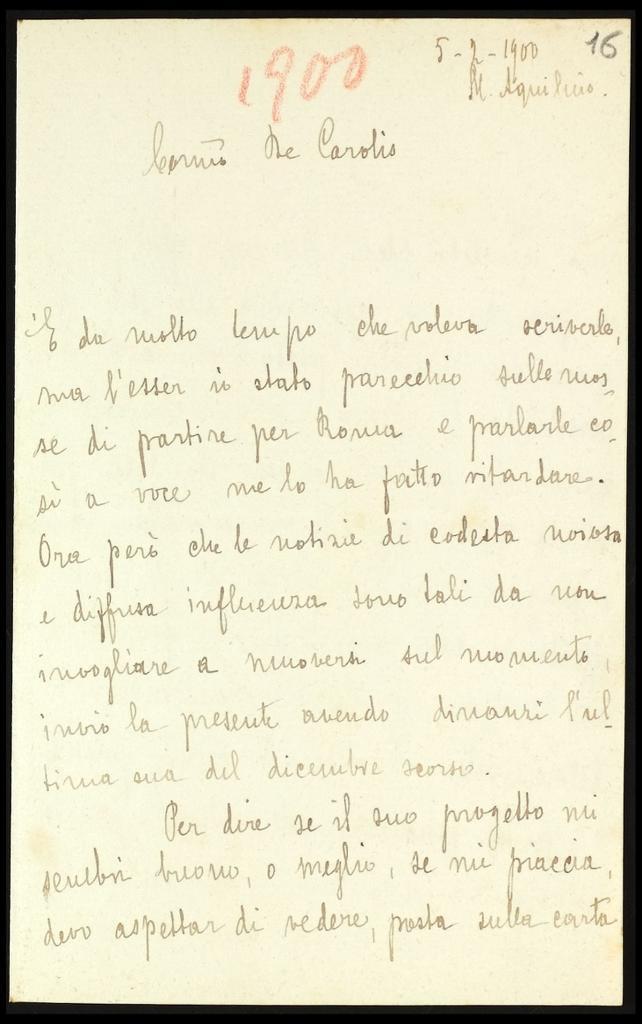 1900
5-2-1900
16
M. Aquilino.
De Carolis
È da molto tempo che voleva scriverle,
ma l'esser io stato parecchio sulle mos-
se di partire per Roma e parlarle co-
sì a voce me lo ha fatto ritardare.
Ora però che le notizie di codesta noiosa
e diffusa influenza sono tali da non
invogliare a muoversi sul momento,
invio la presente avendo dinanzi l'ul-
tima sua del dicembre scorso.
Per dire se il suo progetto mi
sembri buono, o meglio, se mi piaccia,
devo aspettar di vedere, posta sulla carta